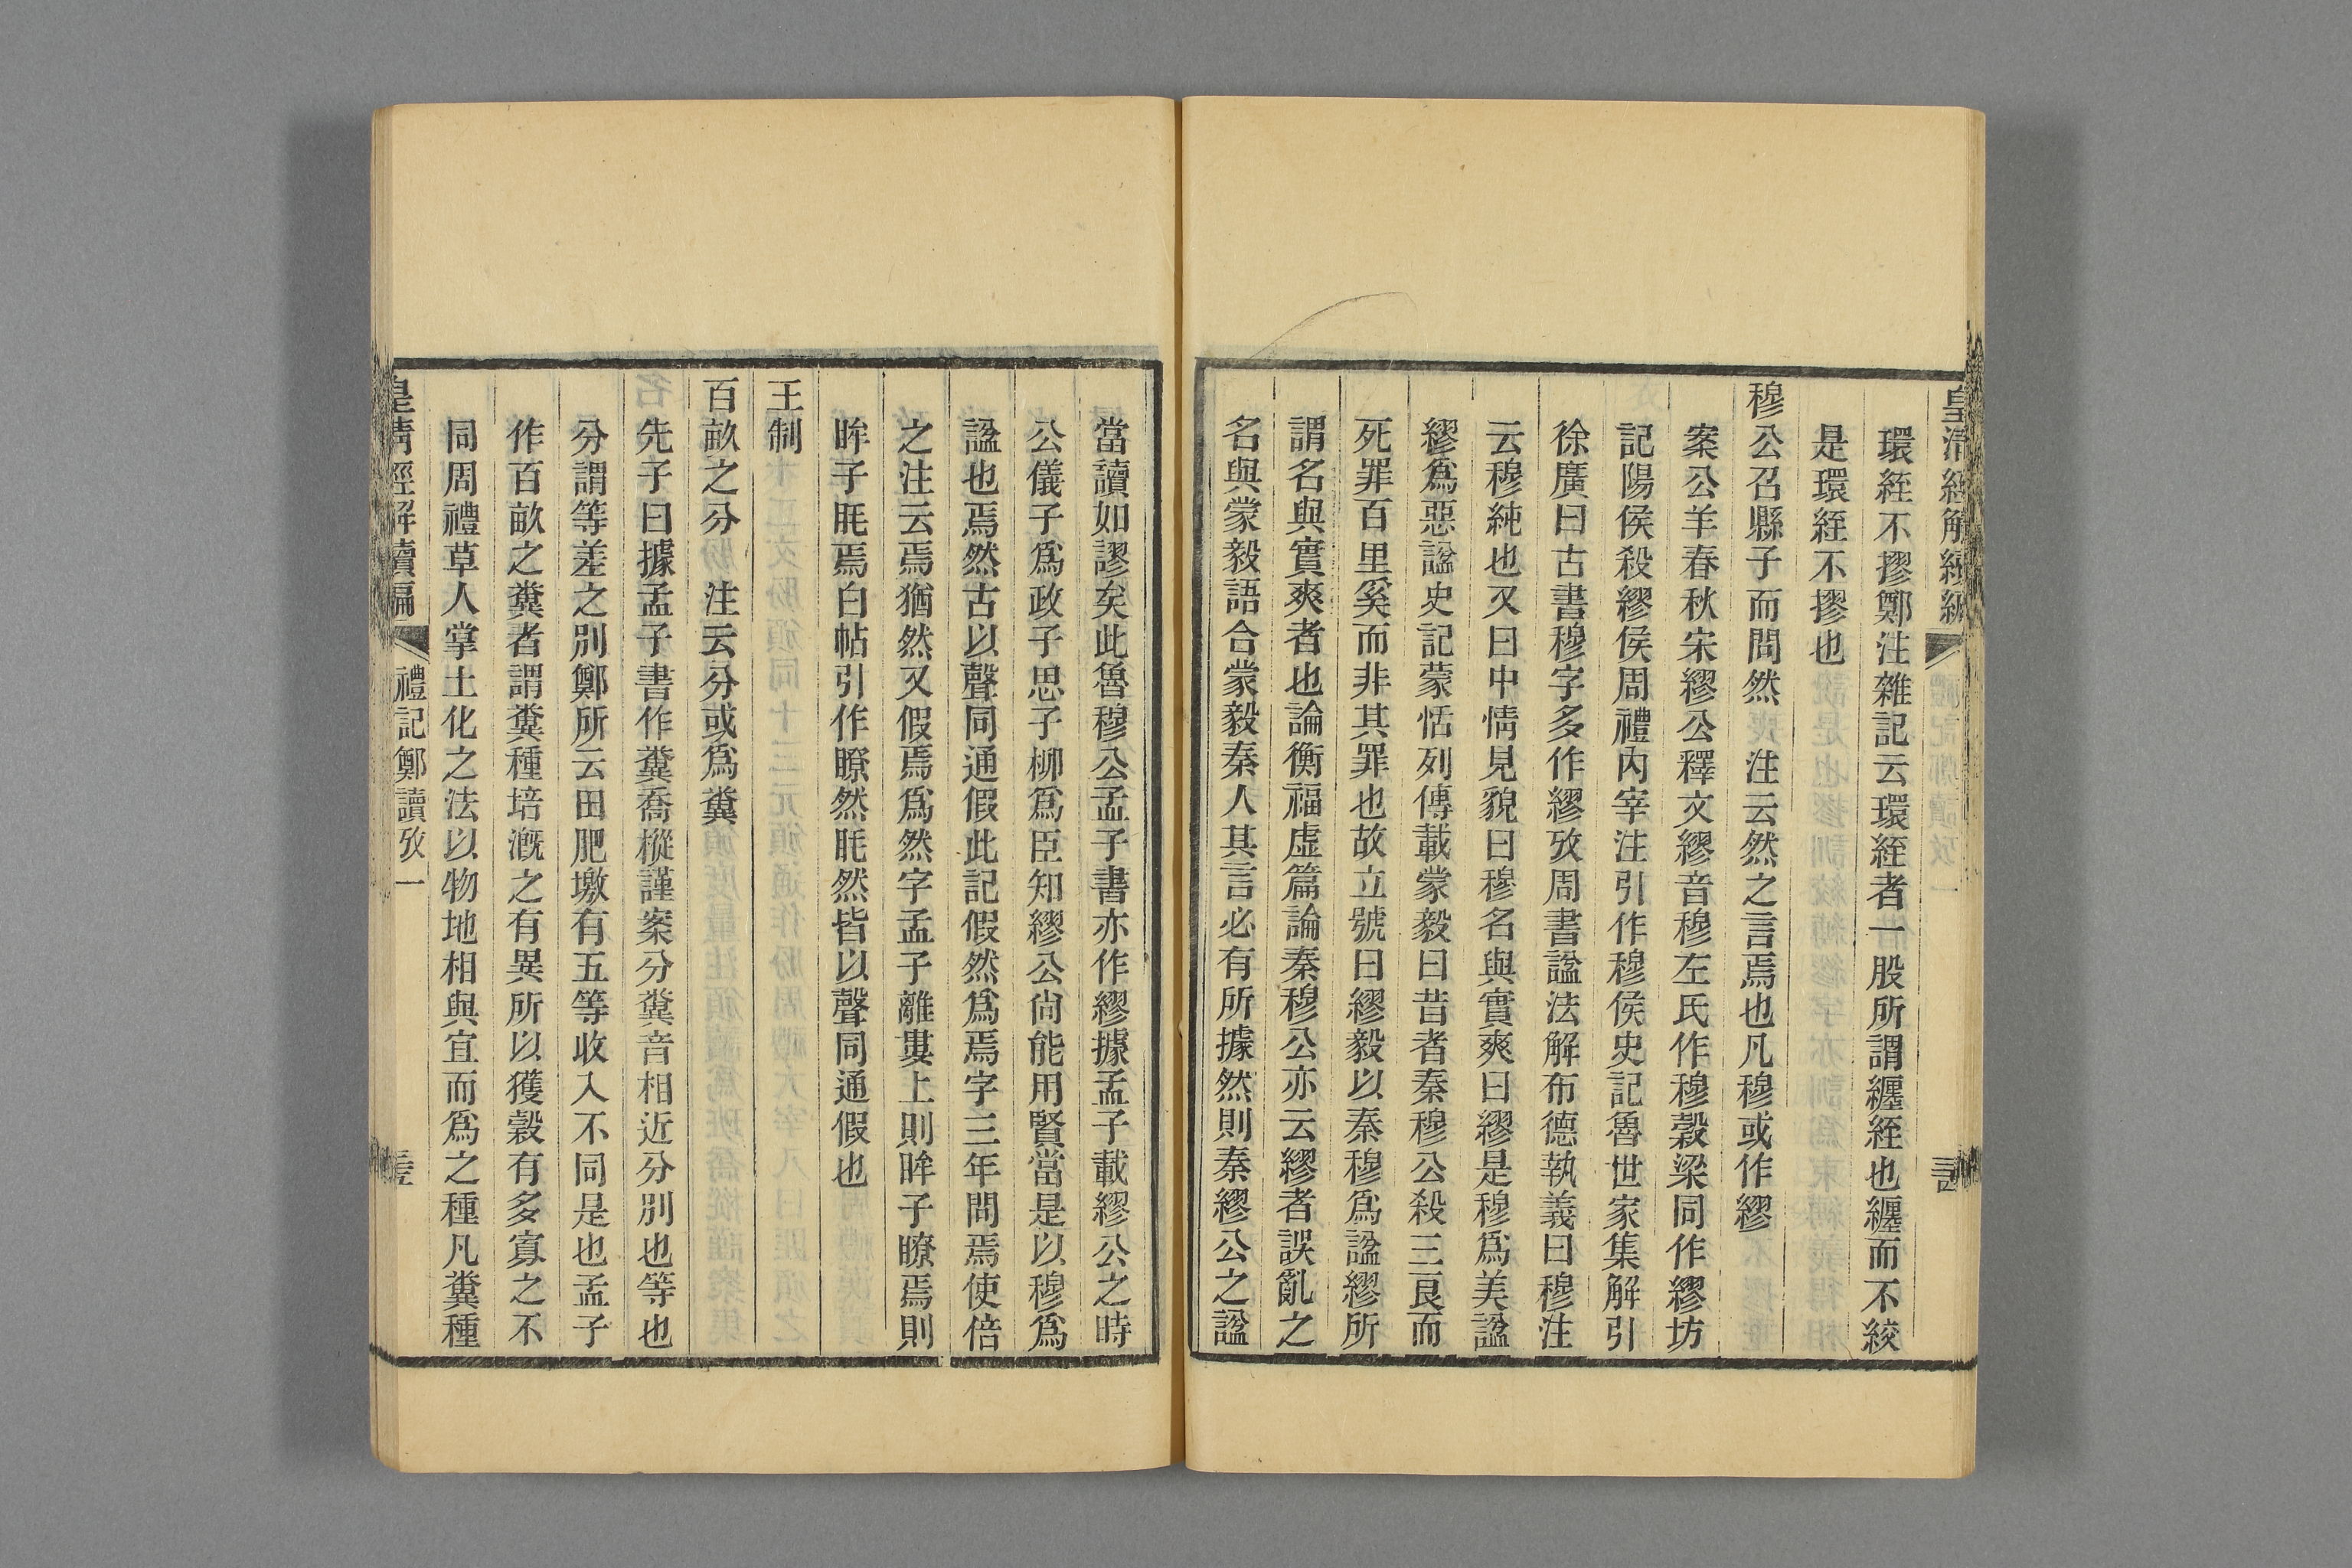 環絰不摎鄭注雜記云環絰者一股所謂纏絰也纏而不絞
是環絰不摎也
穆公召縣子而問然　注云然之言焉也凡穆或作繆
案公羊春秋宋繆公釋文繆音穆左氏作穆穀梁同作繆坊
記陽侯殺繆侯周禮內宰注引作穆侯史記魯世家集解引
徐廣曰古書穆字多作繆攷周書諡法解布德執義曰穆注
云穆純也又曰中情見貌曰穆名與實爽曰繆是穆爲美諡
繆爲惡諡史記蒙恬列傳載蒙毅曰昔者秦穆公殺三良而
死罪百里奚而非其罪也故立號曰繆毅以秦穆爲諡繆所
謂名與實爽者也論衡福虛篇論秦穆公亦云繆者誤亂之
名與蒙毅語合蒙毅秦人其言必有所據然則秦繆公之諡
當讀如謬矣此魯穆公孟子書亦作繆據孟子載繆公之時
公儀子爲政子思子柳爲臣知繆公尙能用賢當是以穆爲
諡也焉然古以聲同通假此記假然爲焉字三年問焉使倍
之注云焉猶然又假焉爲然字孟子離婁上則眸子瞭焉則
眸子眊焉白帖引作瞭然眊然皆以聲同通假也
王制
百畝之分　注云分或爲糞
先子曰據孟子書作糞喬樅謹案分糞音相近分別也等也
分謂等差之別鄭所云田肥墽有五等收入不同是也孟子
作百畝之糞者謂糞種培漑之有異所以獲穀有多寡之不
同周禮草人掌土化之法以物地相與宜而爲之種凡糞種
皇淸經解續編　禮記鄭讀攷一